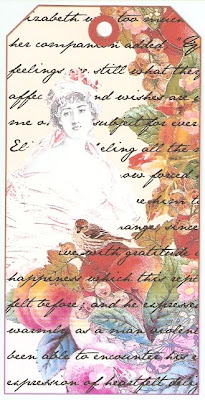 izabeth w too much
her companion added "
feelings still what they
affec nd wishes are
me o subject for ever
El eling all the
ow forced
him to
range since
ve with gratitude
happiness which this rep
felt before; and he expresse
warmly as a man violent
been able to encounter his e
expression of heartfelt delig